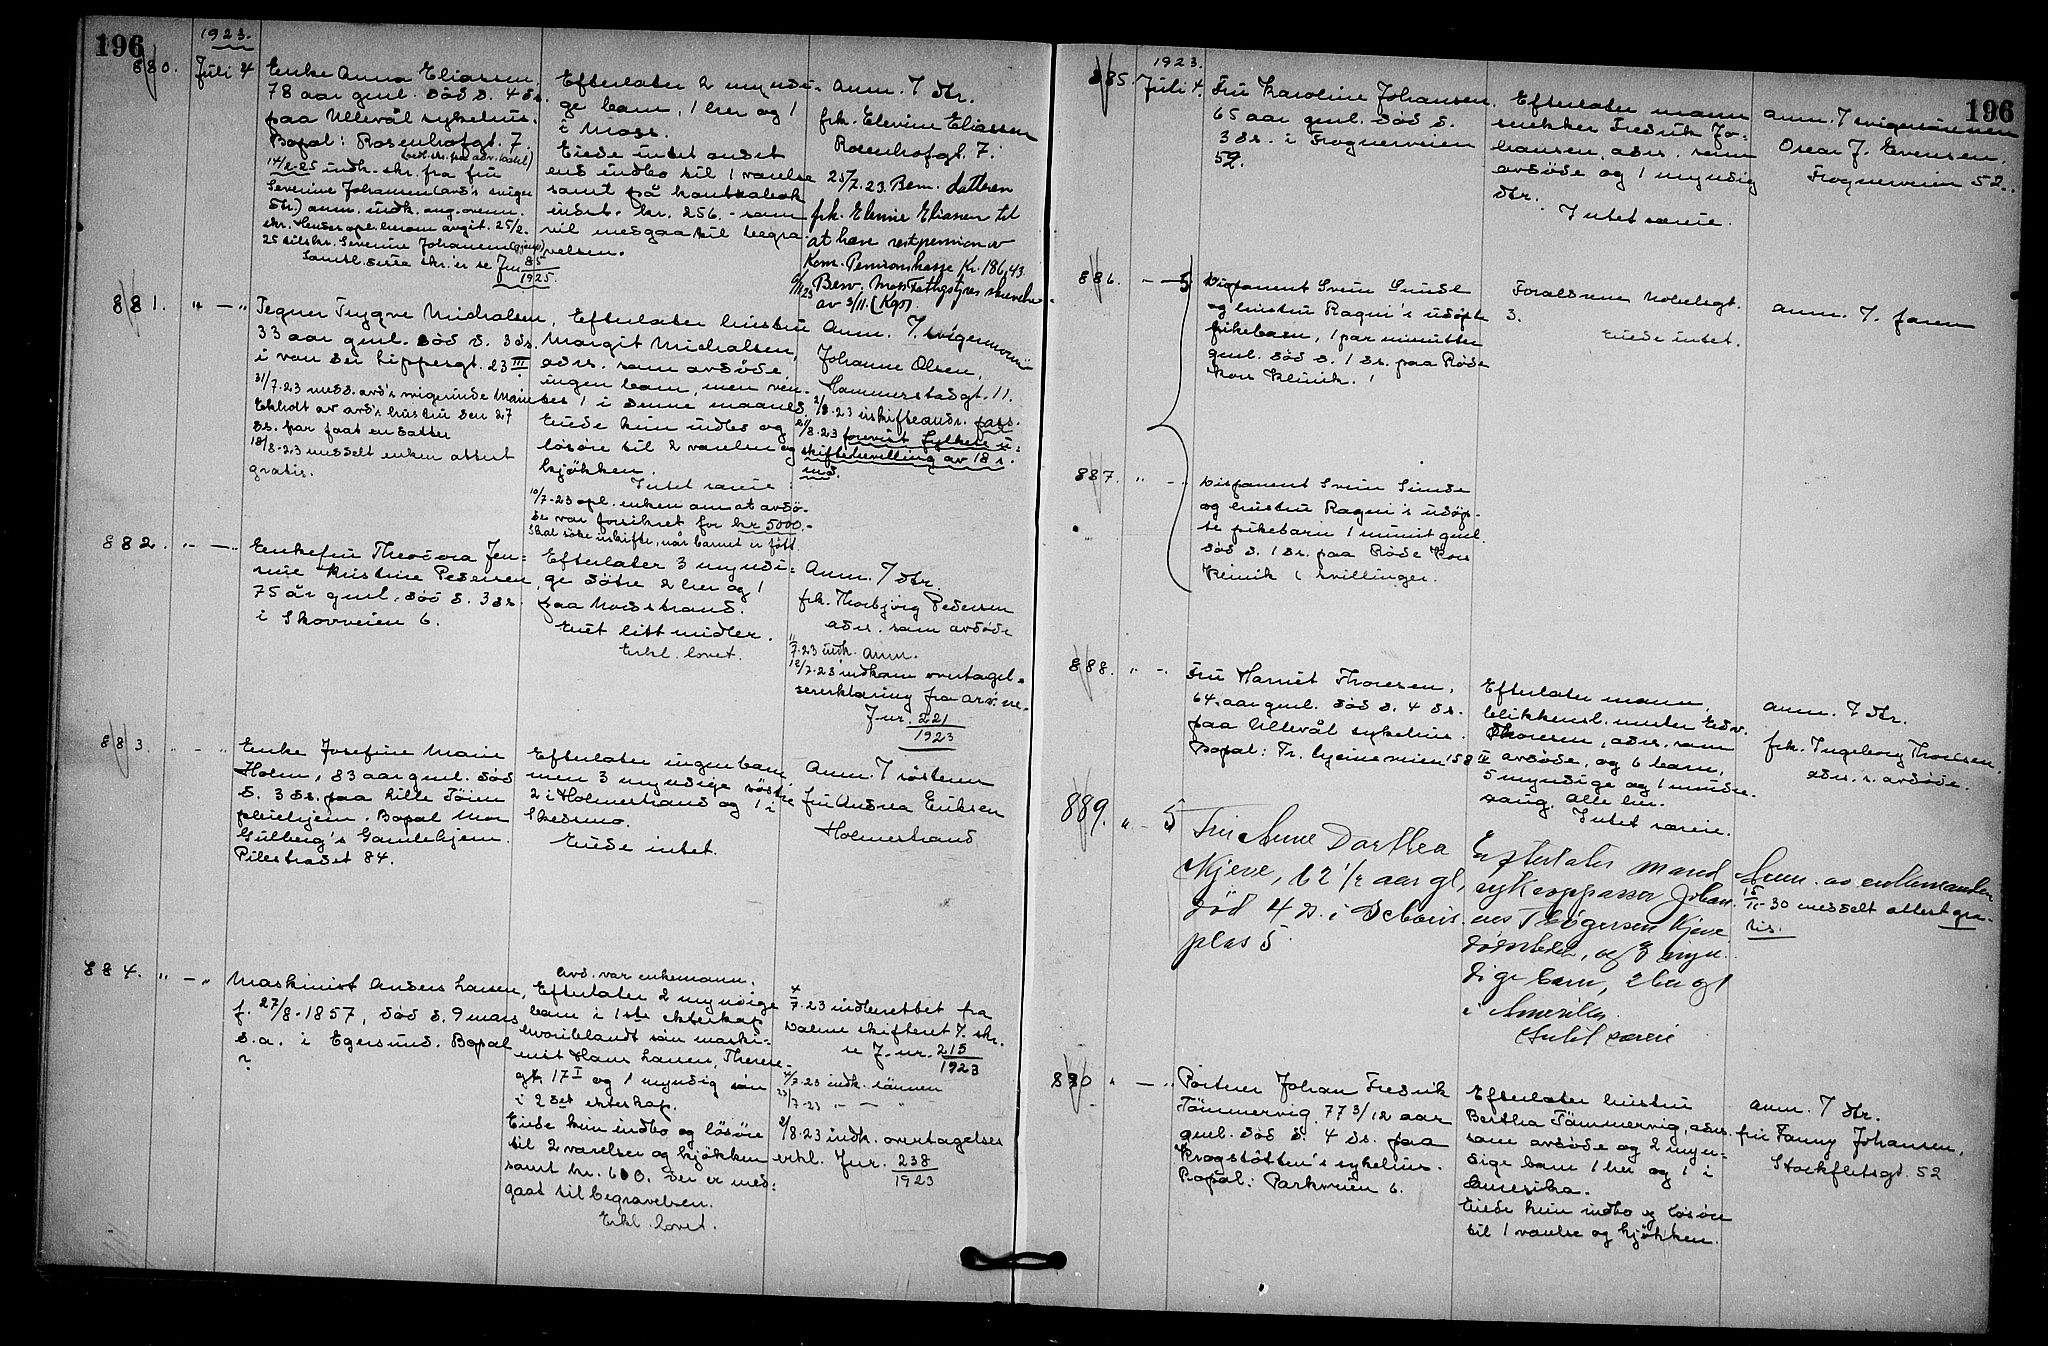 196
1923.
880.
Juli 4
Enke Anna Eliassen,
78 aar gml. död d. 4 ds.
paa Ullevål sykehus.
Bopæl: Rosenhofgt. 7.
14/2-25 indk. skr. fra fru
Severine Johansen (avd's sviger
dtr.) anm. indk. ang. overn.
25/2.
25 tilskr. Severine Johansen
Samtl. disse skr'er se Jnr 85/1925.
Efterlater 2 myndi-
ge barn, 1 her og 1
i Moss.
Eiede intet andet
end indbo til 1 værelse
samt på bankbok
indst. kr. 256.- som
vil medgaa til begra-
velsen.
Anm. 7 dtr.
frk. Elevine Eliassen
Rosenhofgt. 7.
25/7.23. Bem. datteren
frk. Elevine Eliassen til
at hæve restpension av
Kom. Pensionskasse Kr. 186,43
6/11 23 Besv. Moss
av 3/11. (Kgs)
881.
" — "
Tegner Trygve Michalsen,
33 aar gml. död d. 3 ds.
i von der Lippesgt. 23 III
31/7.23 medd. avd's svigerinde Marie
Ekholt av avd's hustru den 27
ds. har faat en datter
18/8-23 meddelt enken attest
gratis.
Efterlater hustru
Margit Michalsen,
adrs. som avdöde,
ingen barn, men ven-
tes 1 i denne maaned.
Eiede kun indbo og
lösöre til 2 værelser og
kjökken.
Intet særeie
10/7-23 opl. enken om at avdö-
de var forsikret for kr 5000.-
Skal söke uskifte, når barnet er fött.
Anm. 7 svigermor
Johanne Olsen,
Hammerstadgt. 11.
2/8.23 uskifteandr. pass.
21/8.23 forevist Fylkets u-
skiftebevilling av 18 s.
md.
882.
" — "
Enkefru Theodora Jen-
sine Kristine Pedersen
75 år gml. död d. 3 ds.
i Skovveien 6.
Efterlater 3 myndi-
ge dötre 2 her og 1
paa Nordstrand.
Eiet litt midler.
Erkl. lovet.
Anm. 7 dtr.
frk. Thorbjörg Pedersen
adrs. som avdöde
7.23 indk. anm.
12/7-23 indkom overtagel-
seserklæring fra arv.ne.
Jnr. 221/1923
883.
" — "
Enke Josefine Marie
Holm, 83 aar gml. död
d. 3 ds. paa Lille Töien
pleiehjem. Bopæl Mor
Gulberg's Gamlehjem.
Pilestrædet 84.
Efterlater ingen barn
men 3 myndige söstre
2 i Holmestrand og 1 i
Skedsmo.
Eiede intet.
Anm. 7 söstern
fru Andrea Eriksen
Holmestrand
884.
" — "
Maskinist Anders Larsen,
f. 27/8-1857, död d. 9 mars
d.a. i Egersund. Bopæl
?
Avd. var enkemann.
Efterlater 2 myndige
barn i 1ste ekteskap
hvoriblandt sön maski-
nist Hans Larsen, Therese-
gt. 17 I og 1 myndig sön
i 2det ekteskap.
Eiede kun indbo og lösöre
til 2 værelser og kjökken
samt kr. 600. Der er med-
gaat til begravelsen.
Erkl. lovet.
4/7.23 indberettet fra
Dalene skifteret 7. skr.
se J. nr. 215/1923
4/7.23 indk. sönnen
23/7-23 — — "
2/8.23 indk. overtagelses
erkl. Jnr. 238/1923
196
1923.
885.
Juli 4.
Fru Karoline Johansen
65 aar gml. död d.
3 ds. i Frognerveien
52.
Efterlater mann
snekker Fredrik Jo-
hansen, adrs. som
avdöde og 1 myndig
dtr.
Intet særeie.
Anm. 7 svigersönnen
Oscar J. Evensen.
Frognerveien 52.
886.
" — 5
Disponent Svein Sunde
og hustru Ragni's udöpte
pikebarn, 1 par minutter
gml. död d. 1 ds. paa Röde
Kors Klinik.
Forældrene Nobelsgt.
3.
Eiede intet.
Anm. 7. faren
887.
" — "
Disponent Svein Sunde
og hustru Ragni's udöp-
te pikebarn 1 minut gml.
död d. 1 ds. paa Röde Kors
Klinik (tvillinger.
888.
" — "
Fru Harriet Thoresen,
64 aar gml. död d. 4 ds.
paa Ullevål sykehus.
Bopæl: Tr. hjemsveien 58 II
Efterlater mann,
blikkensl. mester Edv.
Thoresen, adrs. som
avdöde, og 6 barn,
5 myndige og 1 mindre-
aarig. Alle her.
Intet særeie.
Anm. 7 dtr.
frk. Ingeborg Thoresen,
adrs. s. avdöde.
889.
" — 5
Fru Anne Dorthea
Kjeve, 62 1/2 aar gl,
död 4 ds. i Schous
plas 5.
Efterlater mand
sykeopasser Johan-
nes Thögersen Kjeve
dödsboet, og 3 myn-
dige barn, 2 her og 1
i Amerika.
Intet særeie
Anm. av enkemanden
15/11-30 meddelt attest gra-
tis.
890
" — "
Portner Johan Fredrik
Tömmervig, 77 3/12 aar
gml. död d. 4 ds. paa
Krogstötten's sykehus.
Bopæl: Parkveien 6.
Efterlater hustru
Bertha Tömmervig, adrs.
som avdöde og 2 myn-
dige barn 1 her og 1 i
Amerika.
Eiede kun indbo og lösöre
til 1 værelse og kjökken.
Anm. 7 dtr.
fru Fanny Johansen,
Stockfletsgt. 52